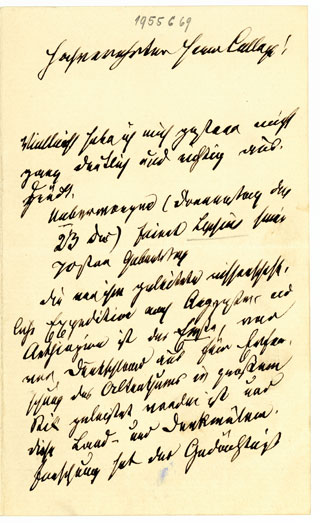 1955 C 69
Hochverehrter Herr College!
Vielleicht habe ich mich gestern nicht
ganz deutlich und richtig aus-
gedrückt.
Uebermorgen (Donnerstag den
23 Dec) feiert Lepsius seinen
70sten Geburtstag
Die von ihm geleitete wissenschaft-
liche Expedition nach Aegypten und
Aethiopien ist das Erste, was
von Deutschland aus für Erfor-
schung des Alterthums in großem
Stil geleistet worden ist und
diese Land- und Denkmäler-
forschung hat das Gedächtniß